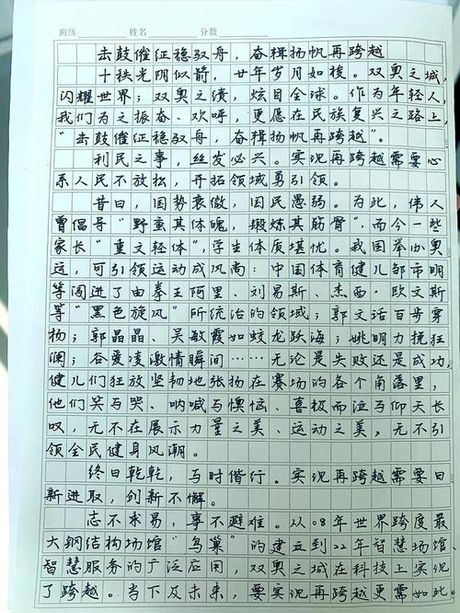 班级 姓名 分数
击鼓催征稳驭舟，奋楫扬帆再跨越
十秩光阴似箭，廿年岁月如梭。双奥之城，
闪耀世界；双奥之绩，炫目全球。作为年轻人，
我们为之振奋、欢呼，更愿在民族复兴之路上，
“击鼓催征稳驭舟，奋楫扬帆再跨越”。
利民之事，丝发必兴。实现再跨越需要心
系人民不放松，开拓领域勇引领。
昔日，国势衰微，国民愚弱。为此，伟人
曾倡导“野蛮其体魄，锻炼其筋骨”，而今一些
家长“重文轻体”，学生体质堪忧。我国举办奥
运，可引领运动成风尚：中国体育健儿邹市明
等闯进了由拳王阿里、刘易斯、杰西·欧文斯
等“黑色旋风”所统治的领域；郭文珺百步穿
杨；郭晶晶、吴敏霞如蛟龙跃海；姚明力挽狂
澜；谷爱凌激情瞬间……无论是失败还是成功，
健儿们狂放坚韧地张扬在赛场的各个角落里，
他们笑与哭、呐喊与懊恼、喜极而泣与仰天长
叹，无不在展示力量之美、运动之美，无不引
领全民健身风潮。
终日乾乾，与时偕行。实现再跨越需要日
新进取，创新不懈。
志不求易，事不避难。从08年世界跨度最
大钢结构场馆“鸟巢”的建立到22年智慧场馆、
智慧服务的广泛应用，双奥之城在科技上实现
了跨越。当下及未来，要实现再跨越更需如此。